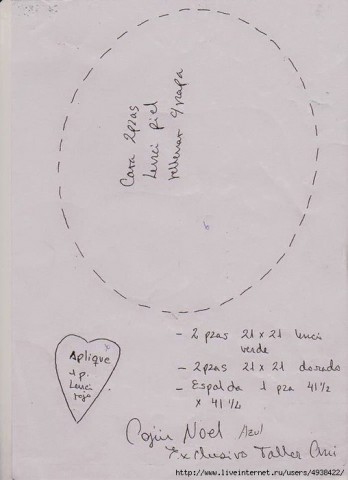 Cara 2pzas
Lenci piel
rellenar c/napa
- 2 pzas 21 x 21 lenci
verde
- 2pzas 21 x 21 dorado
- Espalda 1 pza 41 1/2
x 41 1/2
Aplique
1 p.
Lenci
rojo
Cojin Noel Azul
Exclusivo Taller Ani
http://www.liveinternet.ru/users/4938422/